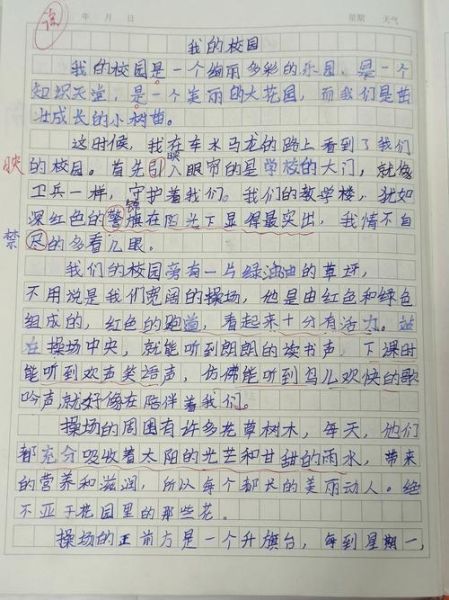 年 月 日 星期 天气
我的校园
我的校园是一个绚丽多彩的乐园，是一个
知识天堂，是一个美丽的大花园，而我们是茁
壮成长的小树苗。
这时候，我在车水马龙的路上看到了我们
映
的校园。首先引入眼帘的是学校的大门，就像
映
卫兵一样，守护着我们。我们的教学楼，犹如
深红色的警旗在阳光下显得最突出，我情不自
禁
尽的多看几眼。
我们的校园旁有一片绿油油的草坪，
不用说是我们宽阔的操场，他是由红色和绿色
组成的，红色的跑道，看起来十分有活力。站
在操场中央，就能听到朗朗的读书声，下课时
能听到欢声笑语声，仿佛能听到鸟儿欢快的歌
吟声，就好像在陪伴着我们。
操场的周围有许多花草树木，每天，他们
都充分吸收着太阳的光芒和甘甜的雨水，带来
的营养和滋润，所以每个都长的美丽动人。绝
不亚于花园里的那些花。
操场的正前方是一个升旗台，每到星期一，